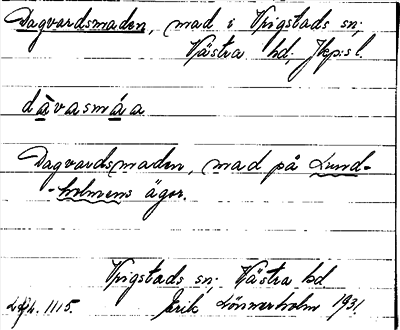 Dagvardsmaden, mad i Vrigstads sn;
Västra hd; Jkp:s l.
dàvasmáa
Dagvardsmaden, mad på Lund-
-holmens ägor.
Vrigstads sn; Västra hd
1115. Erik Lönnerholm 1931.